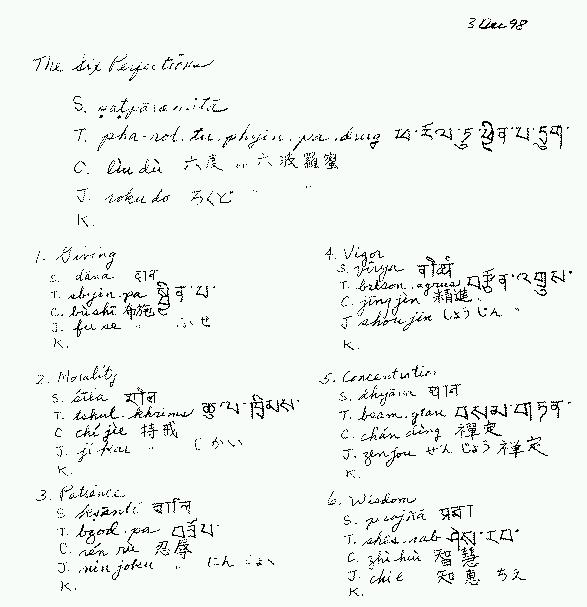 3 Dec 98
The Six Perfections
S. ṣaṭpāramitā
T. pha-rol.tu.phyin.pa.drug ཕ་རོལ་ཏུ་ཕྱིན་པ་དྲུག་
C. liù dù 六度 or 六波羅蜜
J. rokudo ろくど " "
K.
1. Giving
S. dāna दान
T. sbyin.pa སྦྱིན་པ་
C. bùshī 布施
J. fuse " ふせ
K.
2. Morality
S. śīla शील
T. tshul.khrims ཚུལ་ཁྲིམས་
C. chí jiè 持戒
J. jikai " じかい
K.
3. Patience
S. kṣānti
T. bzod.pa བཟོད་པ་
C. rěn rù 忍辱
J. nin joku " にん
K.
4. Vigor
S. vīrya वीर्य
T. brtson.agrus བརྩོན་འགྲུས་
C. jīng jìn 精進
J shoujin しょうじん "
K.
5. Concentration
S. dhyāna
T. bsam.gtan བསམ་གཏན་
C. chán dìng 禪定
J. zenjou ぜんじょう 禅定
K.
6. Wisdom
S. prajñā प्रज्ञा
T. shes.rab ཤེས་རབ་
C. zhì huì 智慧
J. chie 知恵 ちえ
K.